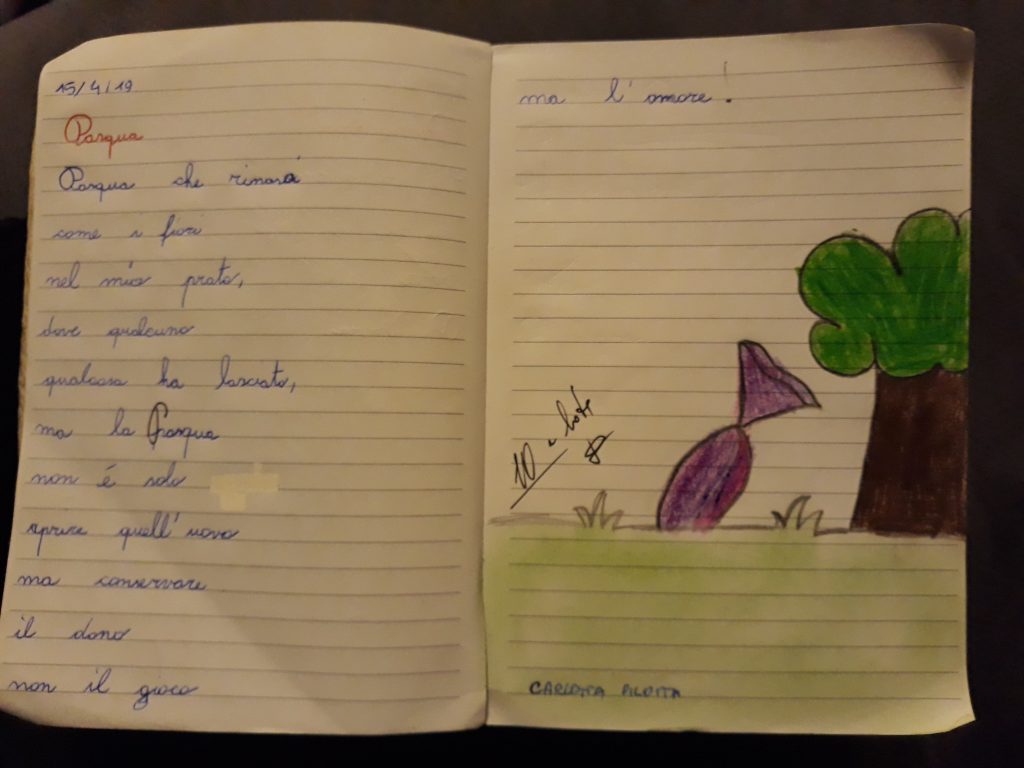 15/4/19
Pasqua
Pasqua che rinasá
come i fiori
nel mio prato,
dove qualcuno
qualcosa ha lasciato,
ma la Pasqua
non é solo
aprire quell'uovo
ma conservare
il dono
non il gioco
ma l'amore!
10 e lode
CARLOTTA PILOTTA